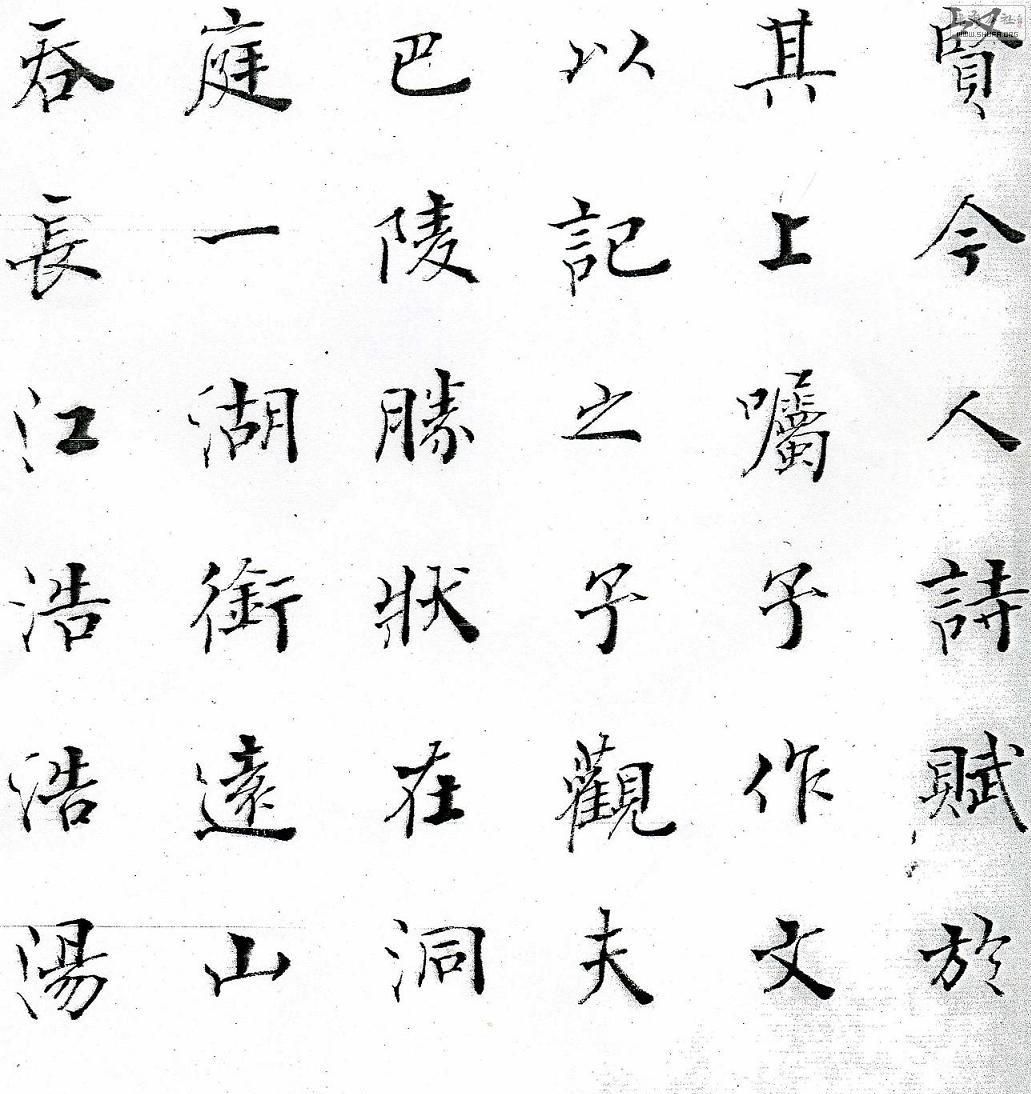 賢今人詩賦於
其上囑予作文
以記之予觀夫
巴陵勝狀在洞
庭一湖銜遠山
吞長江浩浩湯
WWW.SHUFA.ORG